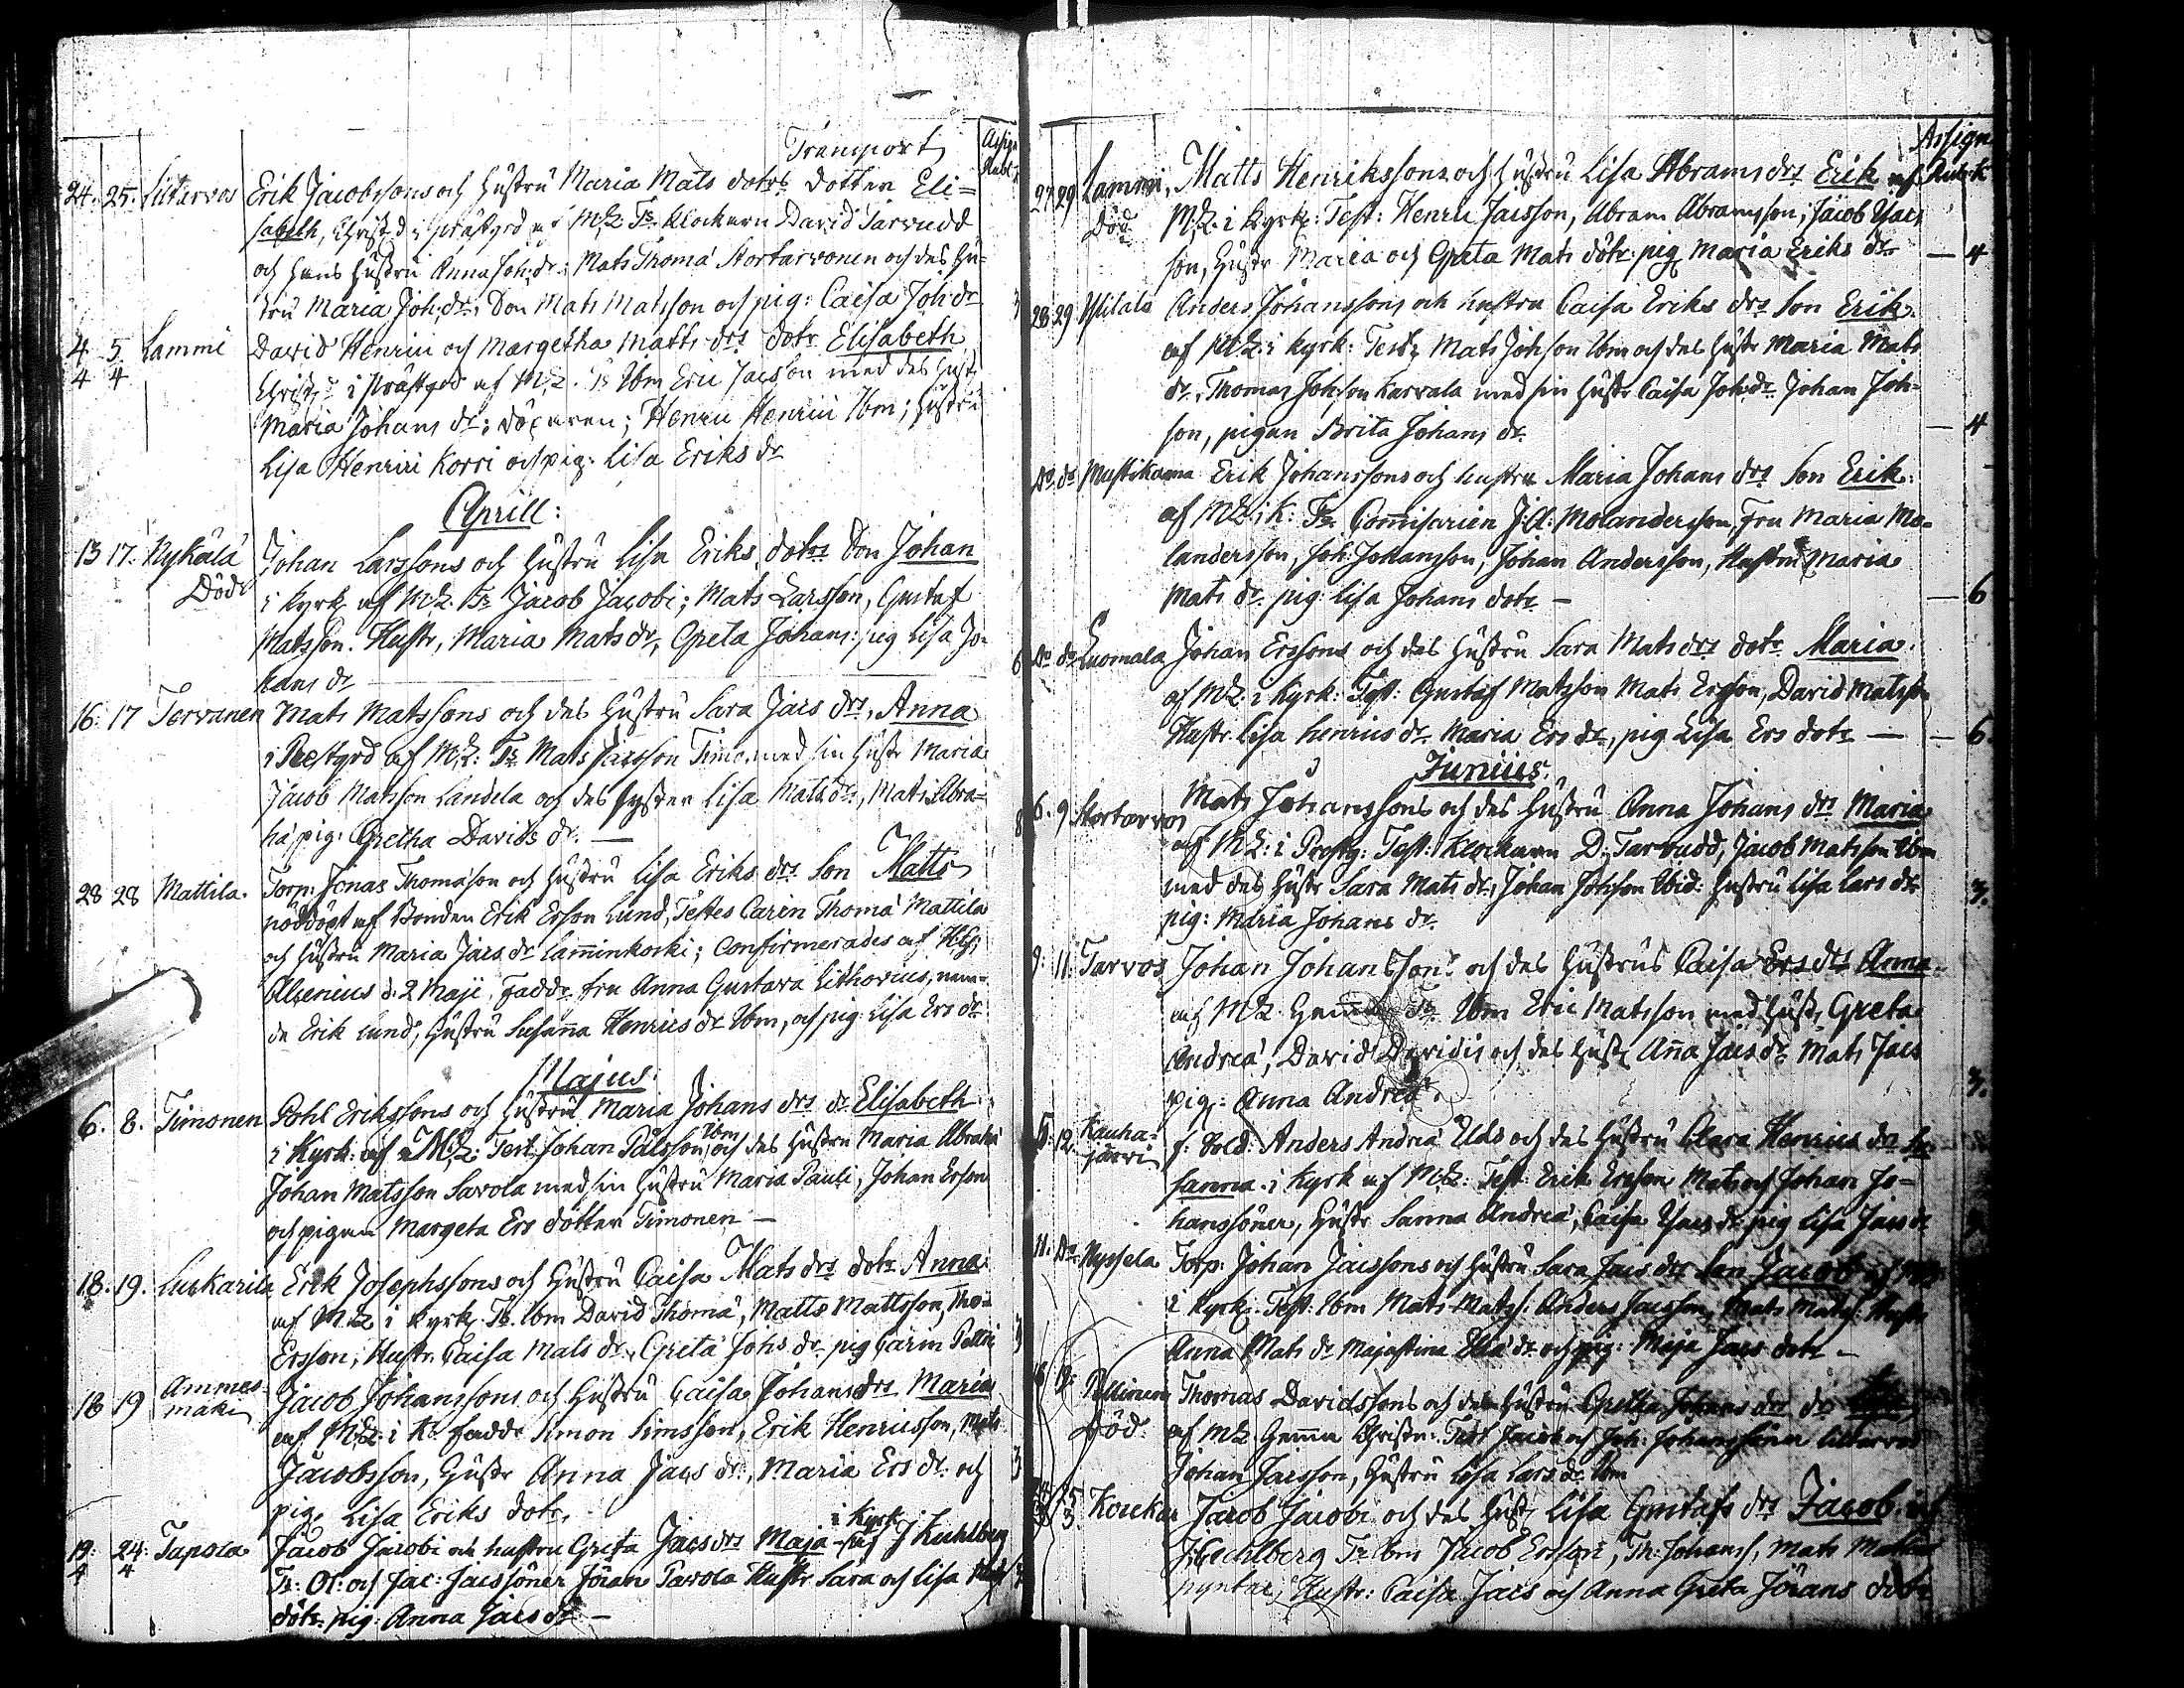 Transport
Assign
Rubl
24. 25. Liitarvos Erik Jacobssons och hustru Maria Mats dotrs dotter Eli=
sabeth, Christ. d. i Prästgrd af MZ Ts Klockarn David Tarvudd
och hans hustru Anna Joh: dr: Mats Thomæ Stortarvonen och des hu=
stru Maria Joh: dr. Son Mats Matsson och pig: Caisa Joh dr
4 5 Lammi David Henrici och Margetha Matts drs dotr Elisabeth
4 4 Christ. i Prästgrd af MZ. Ts Ibm Eric Jacsson med des hust
Maria Johans dr; Henric Henrici Ibm; hustru
Lisa Henrici Korri och pig: Lisa Eriks dr
Aprill:
13 17. Nykälä Johan Larssons och hustru Lisa Eriks dotrs Son Johan
Död i Kyrk af MZ. Ts Jacob Jacobi; Mats Larsson, Gustaf
Matsson. Hustr, Maria Mats dr, Greta Johans: pig Lisa Jo=
hans dr
16. 17 Tervanen Mats Matssons och des hustru Sara Jacs drs, Anna
i Prestgrd af MZ: Ts Mats Jacsson Timo med sin hustr Maria
Jacob Matsson Landela och des syster Lisa Mats dr, Mats Abra=
hã pig: Gretha Davids dr. —
28 28 Mattila. Torp: Jonas Thomason och hustru Lisa Eriks drs Son Matts
nöddöpt af Bonden Erik Erson Lund, Testes Carin Thomæ Mattila
och hustru Maria Jacs dr Lam̄inkoski; Confirmerades af
Alcenius d. 2 Maji, Fadd. fru Anna Gustava Lithovius, nem=
de Erik Lund, hustru Susan̄a Henrics dr Ibm, och pig: Lisa Ers dr
Majus.
6. 8. Timonen Pohl Erikssons och hustru Maria Johans drs dr Elisabeth
i Kyrk: af MZ: Test Johan Pålsson Ibm och des hustru Maria Abrahã
Johan Matsson Savola med sin hustru Maria Pauli, Johan Erson
och pigan Margeta Ers dotter Timonen —
18. 19. Luckarila Erik Josephssons och hustru Caisa Mats drs dotr Anna
af MZ i Kyrk. Ts. Ibm David Thomæ, Matts Mattsson, Tho=
Ersson, Hustr. Caisa Mats dr. Greta Johs dr. pig Carin
18 19 Ammes=
mäki Jacob Johanssons och hustru Caisa Johans drs Maria
af MZ: i K: Fadd. Simon Simsson, Erik Henricsson, Mats
Jacobsson, hustr Anna Jacs dr., Maria Ers dr. och
pig. Lisa Eriks dotr.
19. 24. Tapola Jacob Jacobi och hustru Greta Jacs drs Maja i Kyrk af J Kuhlberg
4 4 Ts: Ol: och Jac: Jacssöner Jöran Pavola Hustr Sara och Lisa
dötr. pig. Anna Jacs dr —
Assign
Rub. k
27 29 Lammi, Matts Henrikssons och hustru Lisa Abrams drs Erik af
Död MZ. i Kyrk: Test: Henric Jacsson, Abram Abramsson, Jacob
son, hustr Maria och Greta Mats dötr. pig Maria Eriks dr — 4
28 29 Ylitalo Anders Johanssons och hustru Caisa Eriks drs Son Erik.
af MZ: i Kyrk: Test; Mats Johson Ibm och des hustr Maria Mats
dr. Thomas Johson Karvala med sin hustr Caisa Joh: dr. Johan Joh=
son, pigan Brita Johans dr. — 4
Do. do Mustikama Erik Johanssons och hustru Maria Johans drs Son Erik.
af MZ: i K: Ts. Com̄issarien J: A: Molandersson, fru Maria Mo=
landersson, Joh: Johansson, Johan Andersson, Hustru Maria
Mats dr. pig: Lisa Johans dotr — — 6
Do do Luomala Johan Erssons och des hustru Sara Mats drs dotr Maria.
af MZ: i Kyrk: Test: Gustaf Matsson Mats Ersson, David Matsson
Hustr Lisa Henrics dr. Maria Ers dr, pig Lisa Ers dotr — — 6.
Junius.
6. 9 Stortarvos Mats Johanssons och des hustru Anna Johans drs Maria
af MZ: i Prestg: Test: Klockarn D: Tarvudd, Jacob Matsson Ibm
med des hustr Sara Mats dr, Johan Johsson Ibid: hustru Lisa Lars dr 3.
pig: Maria Johans dr.
9. 11. Tarvos Johan Johansons och des hustrus Caisa Ers drs Anna.
af MZ. Hem̄a Ts Ibm Eric Matsson med hust, Greta
Andreæ, David Davidis och des hust An̄a Jacs dr. Mats Jacs
pig: Anna Andreæ. 3.
5. 12. Kauha=
järvi f. Sold: Anders Andreæ Ulds och des hustru Clara Henrics drs Su=
sanna. i Kyrk af MZ: Test: Erik Ersson Mats och Johan Jo=
hanssöner, hustr Sanna Andreæ, Caisa dr. pig Lisa Jacs dr
11. Do Nyssela Torp. Johan Jacssons och hustru Sara Jacs drs Son Jacob af MZ
i Kyrk. Test: Ibm Mats Mats: Anders Jacsson, Mats Mats: Hustr
Anna Mats dr Majastina dr och pig: Maja Jacs dotr —
Pellinen Thomas Davidssons och des hustru Gretha Johans drs dr
Död. af MZ Hem̄a Christn: Test Jacob och Joh: Johanssöner
Johan Jacsson, hustru Lisa Lars dr Ibm
Koukar Jacob Jacobi och des hust Lisa Gustafs drs Jacob af
J: Kuhlberg Ts Ibm Jacob Ersson, Th: Johans, Mats
Hustr: Caisa Jacs och Anna Greta Jörans dotr